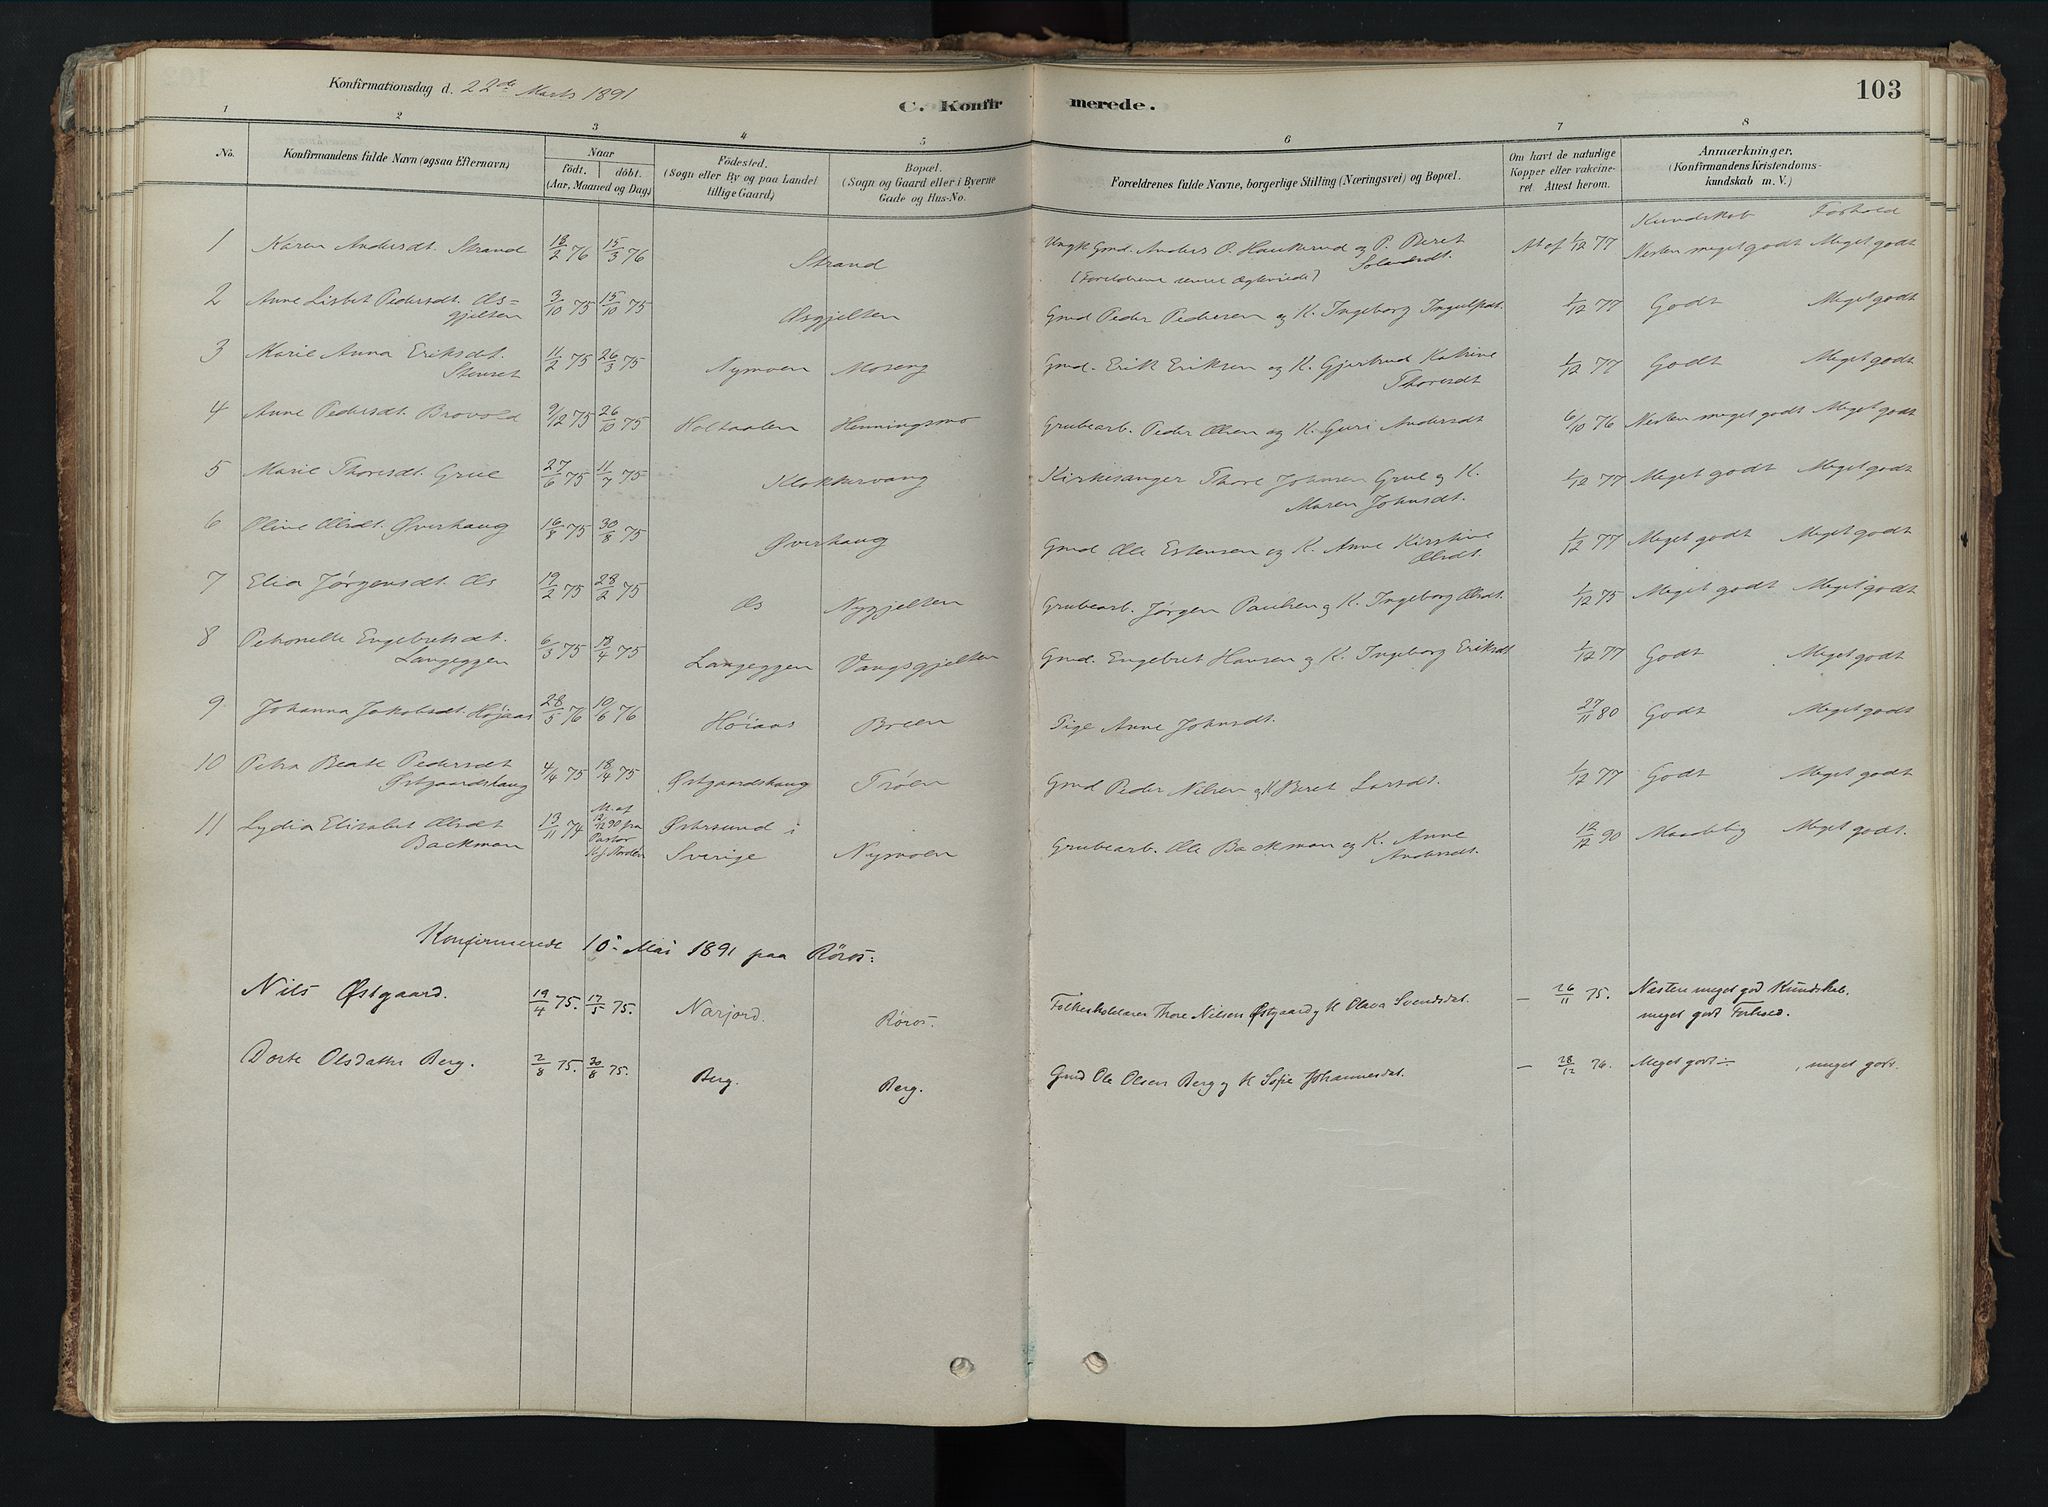 Konfirmationsdag d. 22de Marts 1891
C. Konfirmerede.
103
1 2 3 4 5 6 7 8
No.
Konfirmandens fulde Navn (ogsaa Efternavn)
Naar
födt. döbt.
(Aar, Maaned og Dag)
Födested.
(Sogn eller By og paa Landet
tillige Gaard)
Bopæl.
(Sogn og Gaard eller i Byerne
Gade og Hus-No.
Forældrenes fulde Navne, borgerlige Stilling (Næringsvei) og Bopæl.
Om havt de naturlige
Kopper eller vakcine-
ret. Attest herom.
Anmærkninger.
(Konfirmandens Kristendoms-
kundskab m. V.)
Kundskab Forhold
1 Karen Andersdt. Strand 18/2 76 15/3 76 Strand Ungk. Gmd. Anders O. Haukerud og P. Beret At. af 1/12 77 Nesten meget godt Meget godt
(Foreldrene senere Ægteviede)
2 Anne Lisbet Pedersdt. Øs=
gjelten 3/10 75 15/10 75 Øsgjelten Gmd Peder Pedersen og K. Ingeborg Ingulfsdt. 1/12 77 Godt Meget godt
3 Marie Anna Eriksdt.
Stenset 11/2 75 26/3 75 Nymoen Moseng Gmd. Erik Eriksen og K. Gjertrud Katrine
Thoresdt 1/12 77 Godt Meget godt
4 Anne Pedersdt. Brovold 9/12 75 26/10 75 Holtaalen Henningsmo Grubearb. Peder Olsen og K. Guri Andersdt 6/10 76 Nesten meget godt Meget godt
5 Marie Thoresdt. Grue 27/6 75 11/7 75 Klokkervang Kirkesanger Thore Johnsen Grue og K.
Maren Johnsdt. 1/12 77 Meget godt Meget godt
6 Oline Olsdt. Øverhaug 16/8 75 30/8 75 Øverhaug Gmd Ole Estensen og K. Anne Kirstine
Olsdt. 1/12 77 Meget godt Meget godt
7 Elen Jørgensdt. Øs 19/2 75 28/2 75 Øs Nygjelten Grubearb. Jørgen Paulsen og K. Ingeborg Olsdt. 1/12 75 Meget godt Meget godt
8 Petronelle Engebretsdt.
Langeggen 6/3 75 18/4 75 Langeggen Vangsgjelten Gmd. Engebret Hansen og K. Ingeborg Eriksdt 1/12 77 Godt Meget godt
9 Johanna Jakobsdt. Højaas 28/5 76 10/6 76 Høiaas Breen Pige Anne Johnsdt. 27/11 80 Godt Meget godt
10 Petra Beate Pedersdt
Østgaardshaug 4/4 75 18/4 75 Østgaardshaug Trøen Gmd Peder Nilsen og K Beret Larsdt. 1/12 77 Godt Meget godt
11 Lydia Elisabet Olsdt
Backman 13/11 74 M. af
12/12 90 fra
Pastor
Østersund i
Sverige Nymoen Grubearb. Ole Backman og K. Anne
Andersdt. 12/12 90 Maadelig Meget godt.
Konfirmerede 10. Mai 1891 paa Røros:
Nils Østgaard. 19/4 75. 17/5 75. Narjord. Røros. Folkeskolelærer Thore Nilsen Østgaard og K Olava Svendsdat. – 26/11 75. Næsten meget god Kundskab.
meget godt Forhold.
Dorte Olsdatter Berg. 2/8 75. 30/8 75. Berg. Berg. Gmd Ole Olsen Berg og K Sofie Johannesdat. – 28/12 76. Meget godt , meget godt.